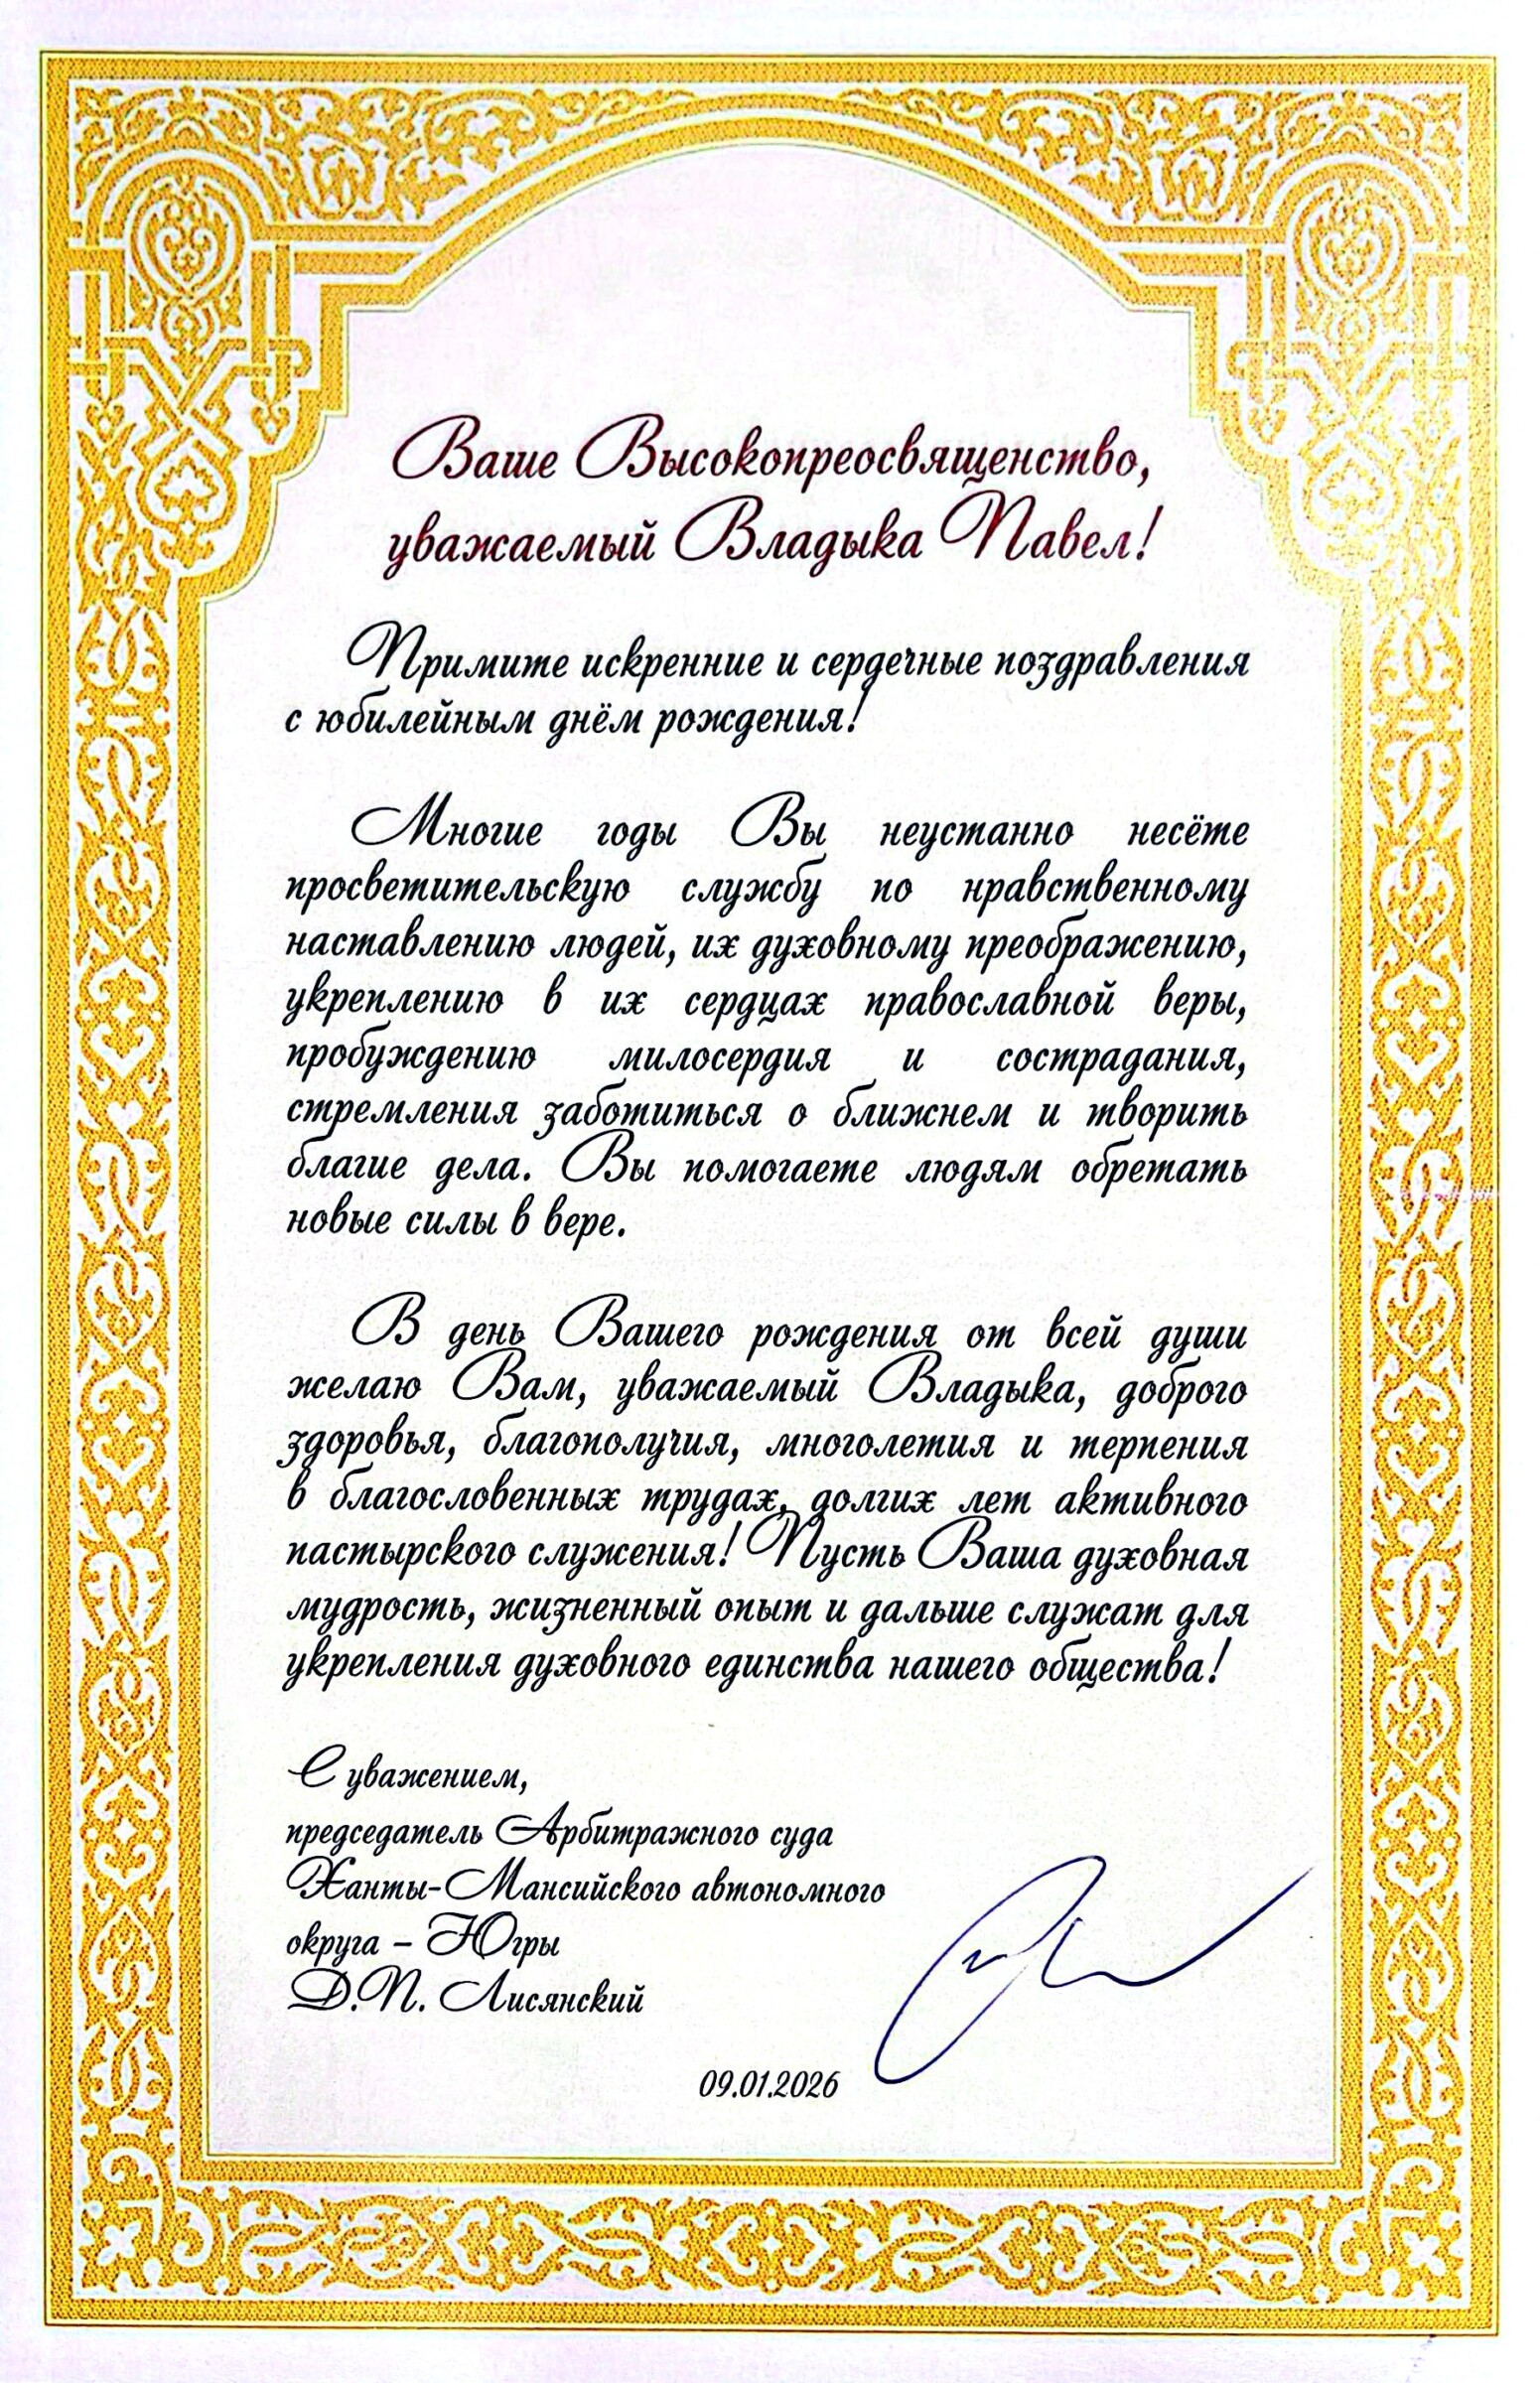 Ваше Высокопреосвященство,
уважаемый Владыка Павел!
Примите искренние и сердечные поздравления
с юбилейным днём рождения!
Многие годы Вы неустанно несёте
просветительскую службу по нравственному
наставлению людей, их духовному преображению,
укреплению в их сердцах православной веры,
пробуждению милосердия и сострадания,
стремления заботиться о ближнем и творить
благие дела. Вы помогаете людям обретать
новые силы в вере.
В день Вашего рождения от всей души
желаю Вам, уважаемый Владыка, доброго
здоровья, благополучия, многолетия и терпения
в благословенных трудах, долгих лет активного
пастырского служения! Пусть Ваша духовная
мудрость, жизненный опыт и дальше служат для
укрепления духовного единства нашего общества!
С уважением,
председатель Арбитражного суда
Ханты-Мансийского автономного
округа – Югры
Д.П. Лисянский
09.01.2026